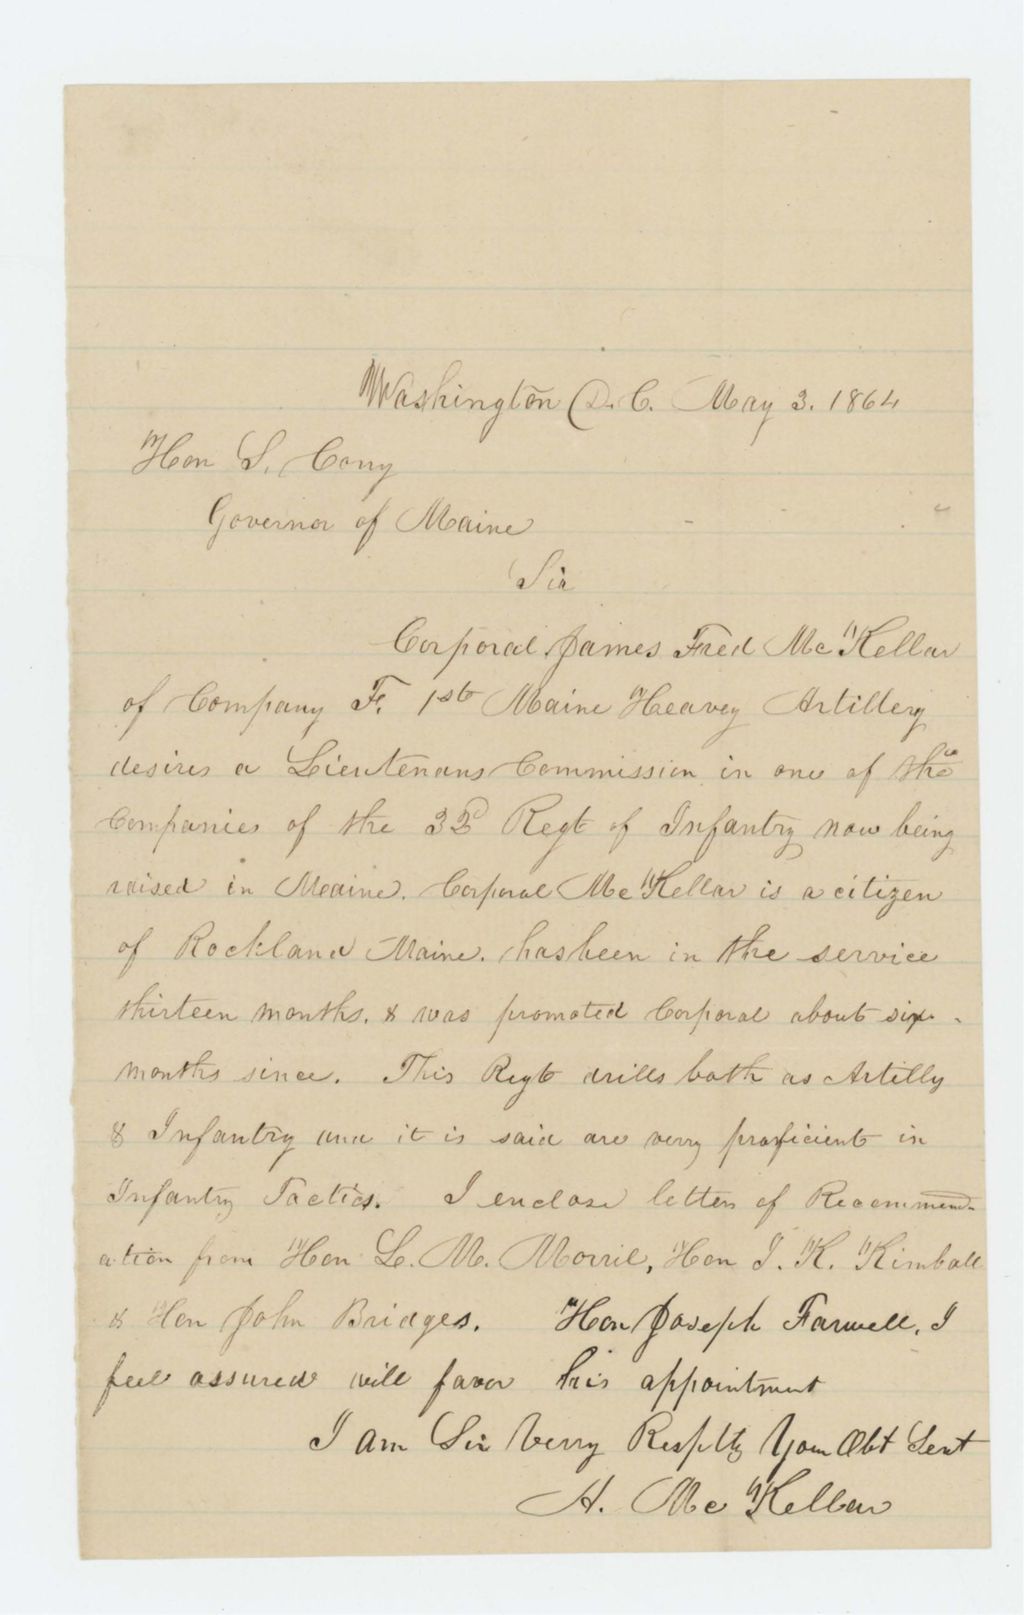 Washington D.C. May 3. 1864
Hon S. Cony
Governor of Maine
Sir
Corporal James Fred McKellar
of Company F. 1st Maine Heavey Artillery
desires a Lieutenans Commission in one of the
Companies of the 32d Regt of Infantry now being
raised in Maine. Corporal McKellar is a citizen
of Rockland Maine. has been in the service
thirteen months. & was promoted Corporal about six
months since. This Regt drills both as Artilly
& Infantry and it is said are very proficient in
Infantry Tactics. I enclose letters of Recommend-
ation from Hon L. M. Morril, Hon I. K. Kimball
& Hon John Bridges. Hon Joseph Farwell, I
feel assured will favor his appointment
I am Sir Verry Resptly Your Obt Sevt
A. McKellar